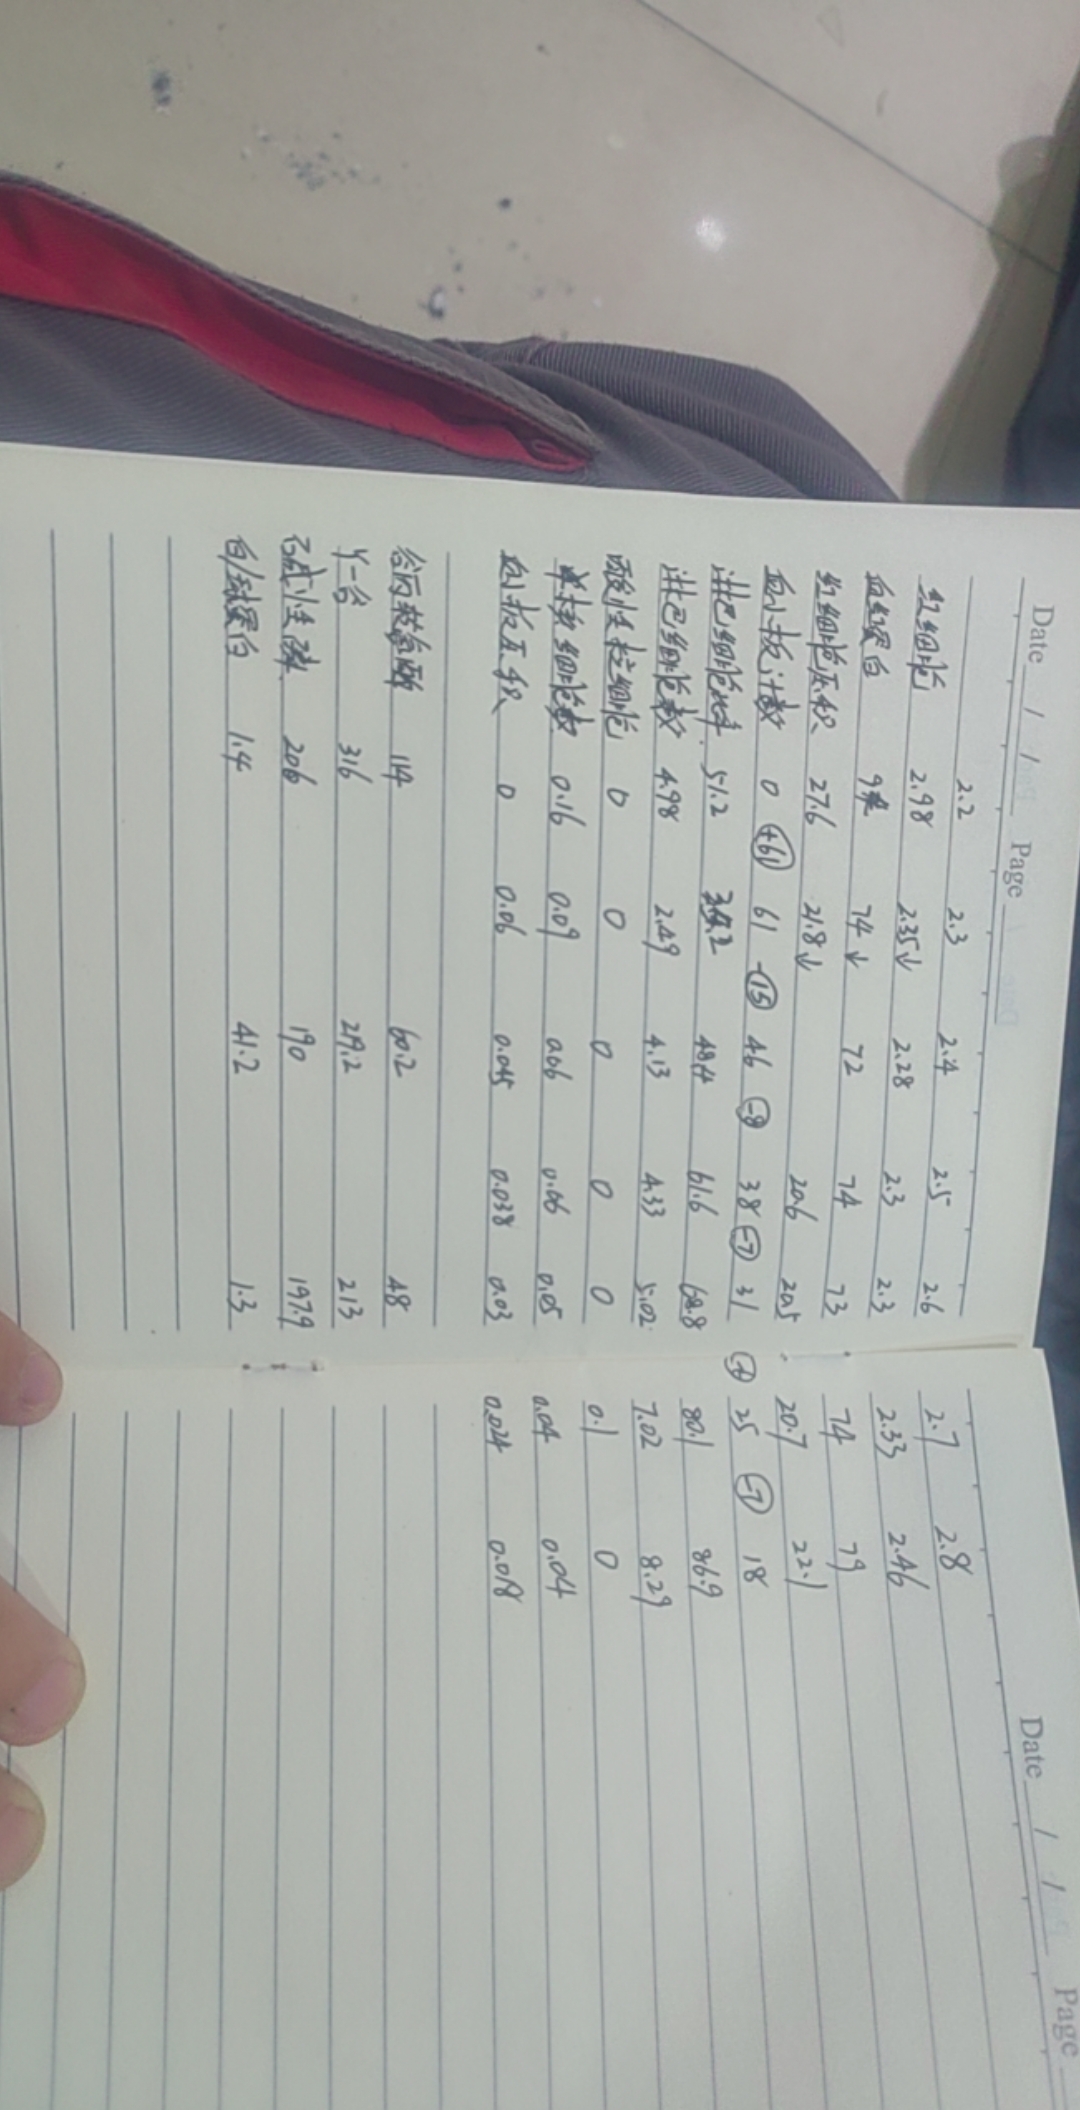 Date / / Page
2.2 2.3 2.4 2.5 2.6 2.7 2.8
红细胞 2.98 2.35↓ 2.28 2.3 2.3 2.33 2.46
血红蛋白 74↓ 72 74 73 74 79
红细胞压积 27.6 21.8↓ 20.6 20.5 20.7 22.1
血小板计数 0 (+61) 61 -(15) 46 (-8) 38 (-7) 31 25 (-7) 18
淋巴细胞比率 51.2 48.4 61.6 68.8 80.1 86.9
淋巴细胞数 4.98 2.49 4.13 4.33 5.02 7.02 8.29
嗜酸性粒细胞 0 0 0 0 0 0.1 0
单核细胞数 0.16 0.09 0.06 0.06 0.05 0.04 0.04
血小板压积 0 0.06 0.045 0.038 0.03 0.024 0.018
谷丙转氨酶 114 60.2 48
γ-谷 316 219.2 213
碱性磷 206 190 197.9
白/球蛋白 1.4 41.2 1.3
Date / / Page